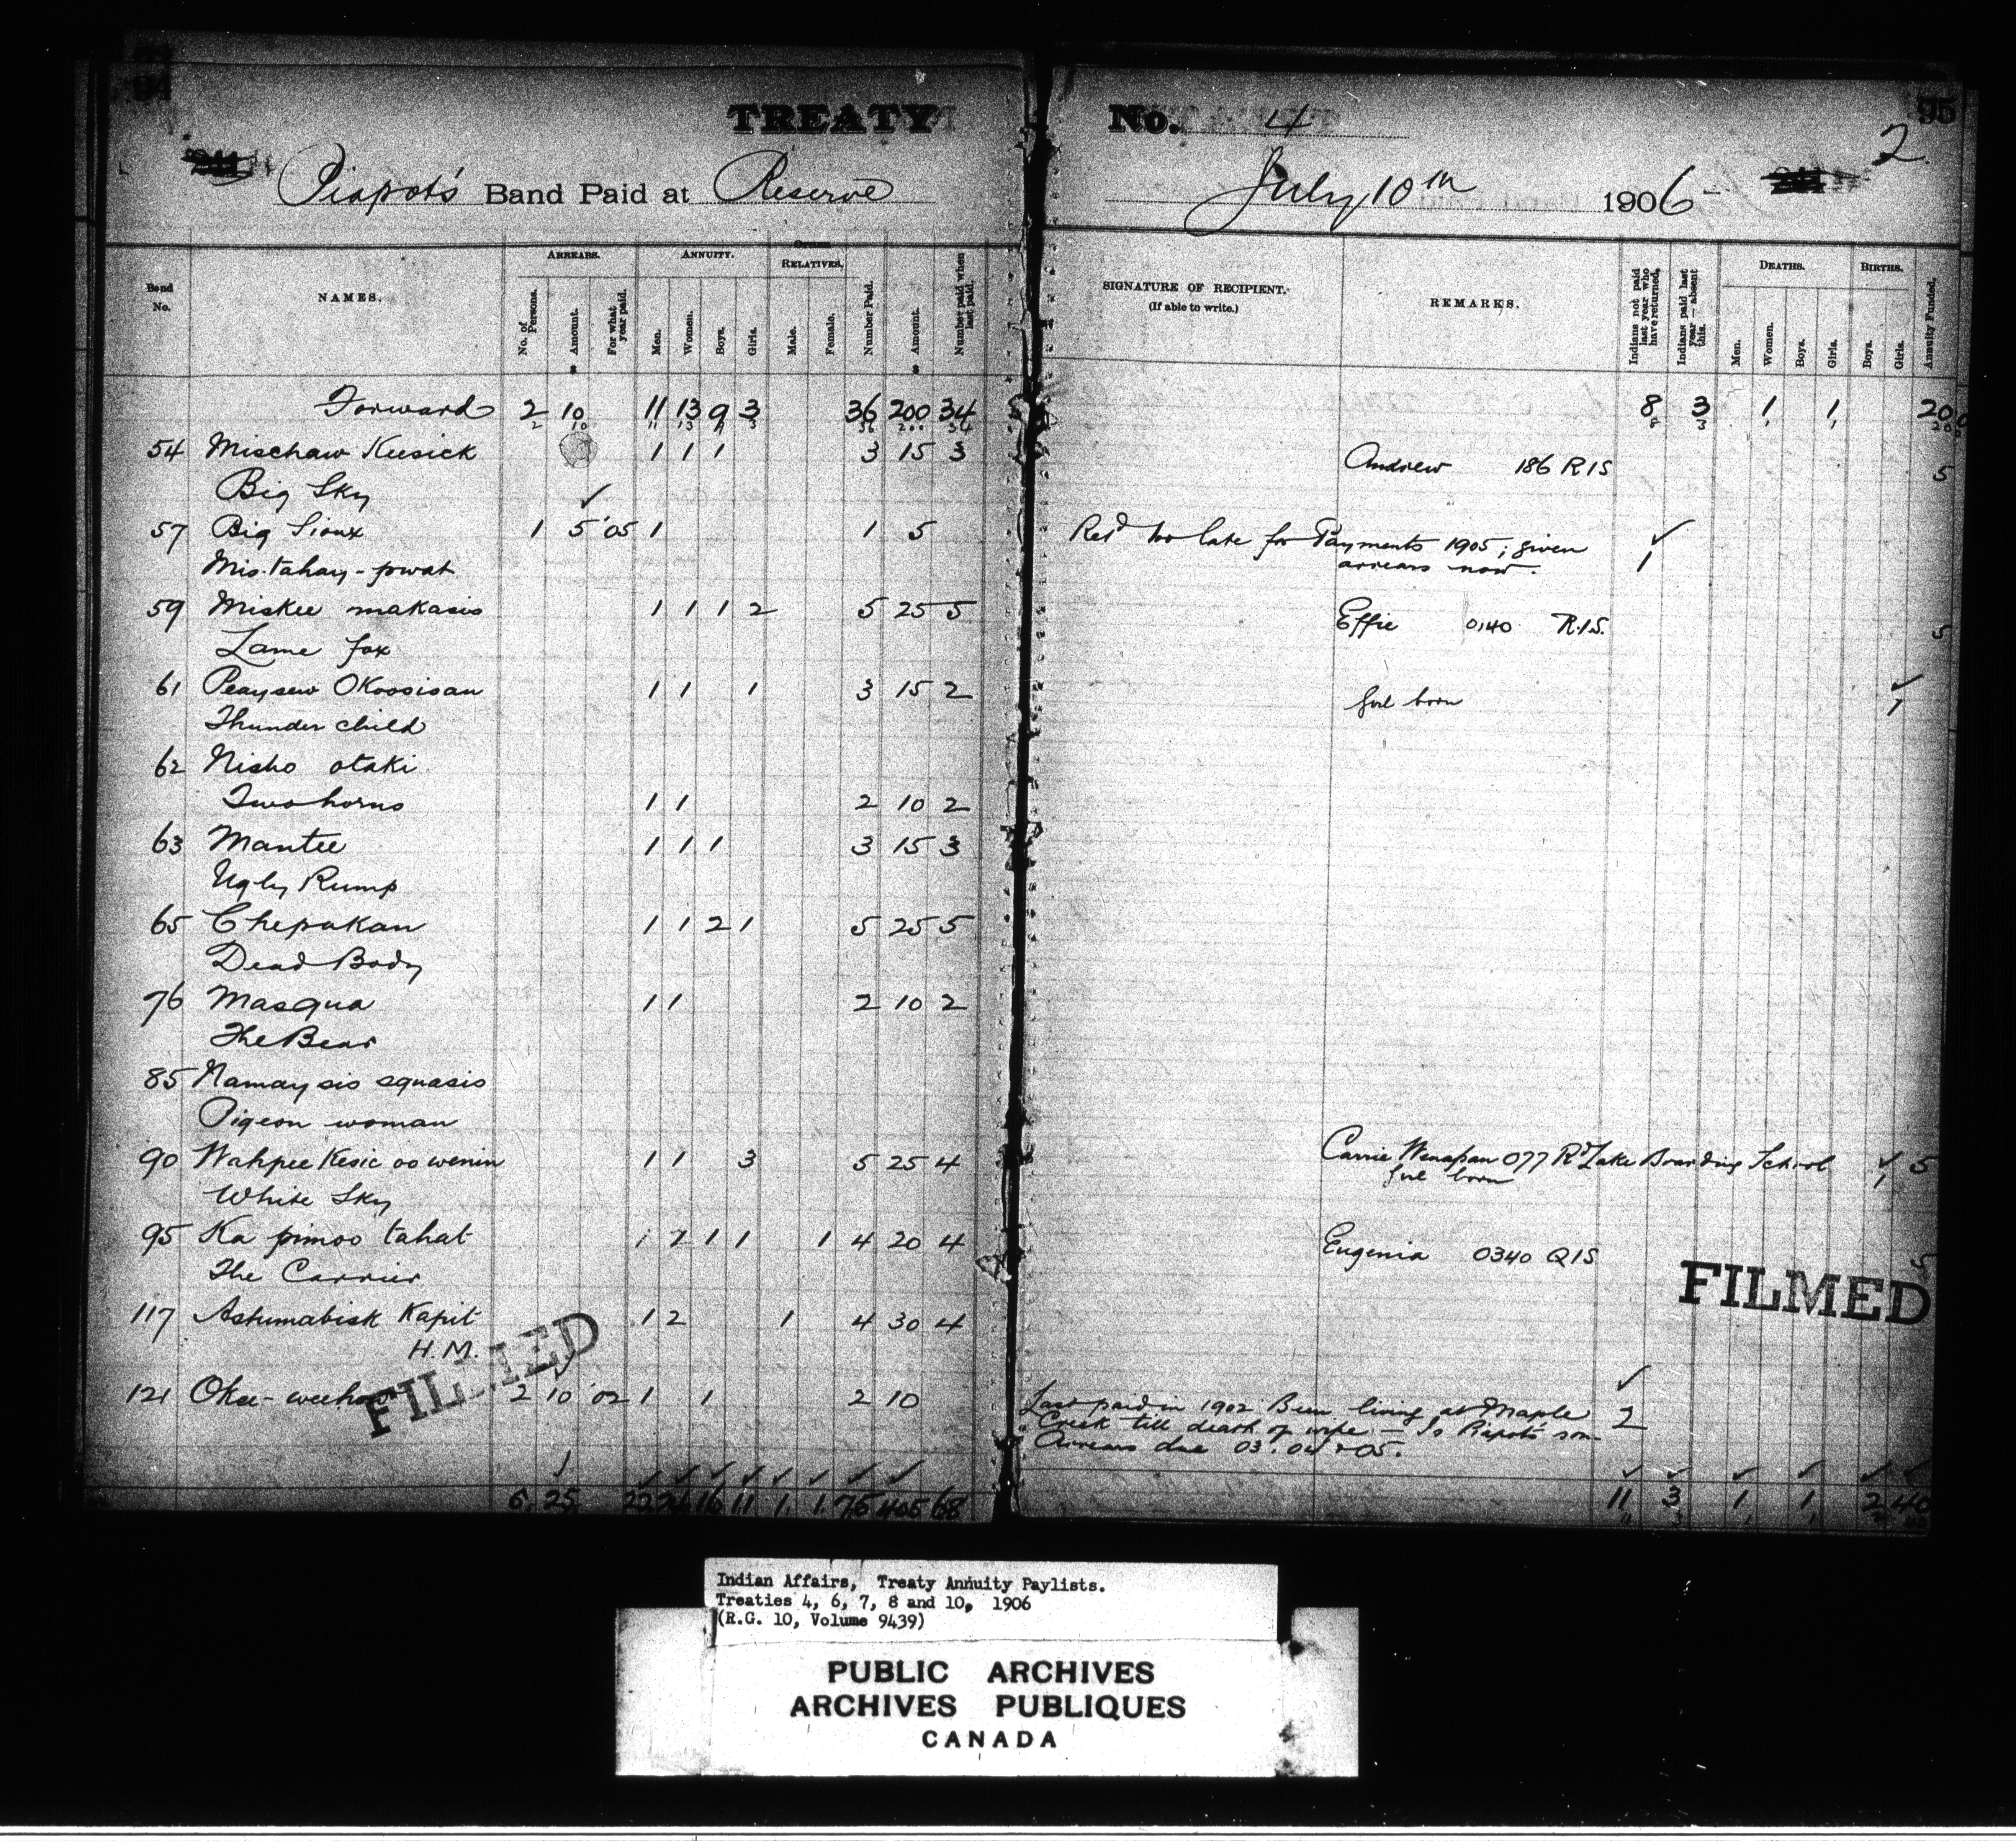 94
95
TREATY No. 4
2
Piapot's Band Paid at Reserve July 10th 1906
Band No. NAMES. ARREARS. No. of Persons. Amount. For what year paid. ANNUITY. Men. Women. Boys. Girls. OTHER RELATIVES. Male. Female. Number Paid. Amount. Number paid when last paid.
SIGNATURE OF RECIPIENT. (If able to write.) REMARKS. Indians not paid last year who have returned. Indians paid last year—absent this. DEATHS. Men. Women. Boys. Girls. BIRTHS. Boys. Girls. Annuity Funded.
Forward 2 10 11 13 9 3 36 200 34 8 3 1 1 20
54 Mischaw Keesick 1 1 1 3 15 3 Andrew 186 RIS 5
Big Sky
57 Big Sioux 1 5 '05 1 1 5 Ret'd too late for Payments 1905; given 1
Mis-tahay-pwat arrears now.
59 Miskee makasis 1 1 1 2 5 25 5 Effie 0140 R.I.S. 5
Lame fox
61 Peaysew Okoosisan 1 1 1 3 15 2 Girl born 1
Thunder child
62 Nisho otaki
Two horns 1 1 2 10 2
63 Mantee 1 1 1 3 15 3
Ugly Rump
65 Chepakan 1 1 2 1 5 25 5
Dead Body
76 Masqua 1 1 2 10 2
The Bear
85 Namaysis squasis
Pigeon woman
90 Wahpee Kesic oo wenin 1 1 3 5 25 4 Carrie Wenapan 077 R'd Lake Boarding School 1 5
White Sky girl born
95 Ka pimoo tahat 1 2 1 1 1 4 20 4 Eugenia 0340 QIS 5
The Carrier
117 Ashumabisk Kapit 1 2 1 4 30 4
H.M.
121 Okee-weehaw 2 10 '02 1 1 2 10 Last paid in 1902 Been living at Maple 2
Creek till death of wife — Is Piapot's son
Arrears due 03. 04 & 05.
5 25 22 24 16 11 1 1 75 405 68 11 3 1 1 2 40
FILMED
FILMED
Indian Affairs, Treaty Annuity Paylists.
Treaties 4, 6, 7, 8 and 10, 1906
(R.G. 10, Volume 9439)
PUBLIC ARCHIVES
ARCHIVES PUBLIQUES
CANADA